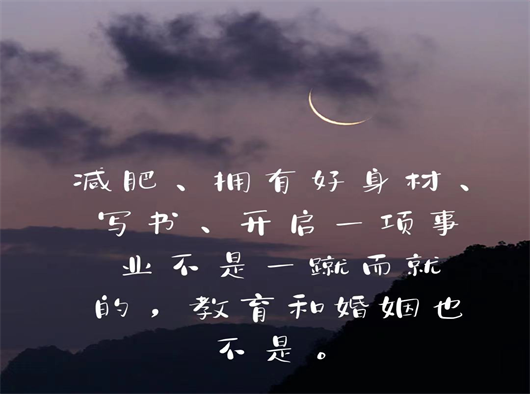 减肥、拥有好身材、
写书、开启一项事
业不是一蹴而就
的，教育和婚姻也
不是。